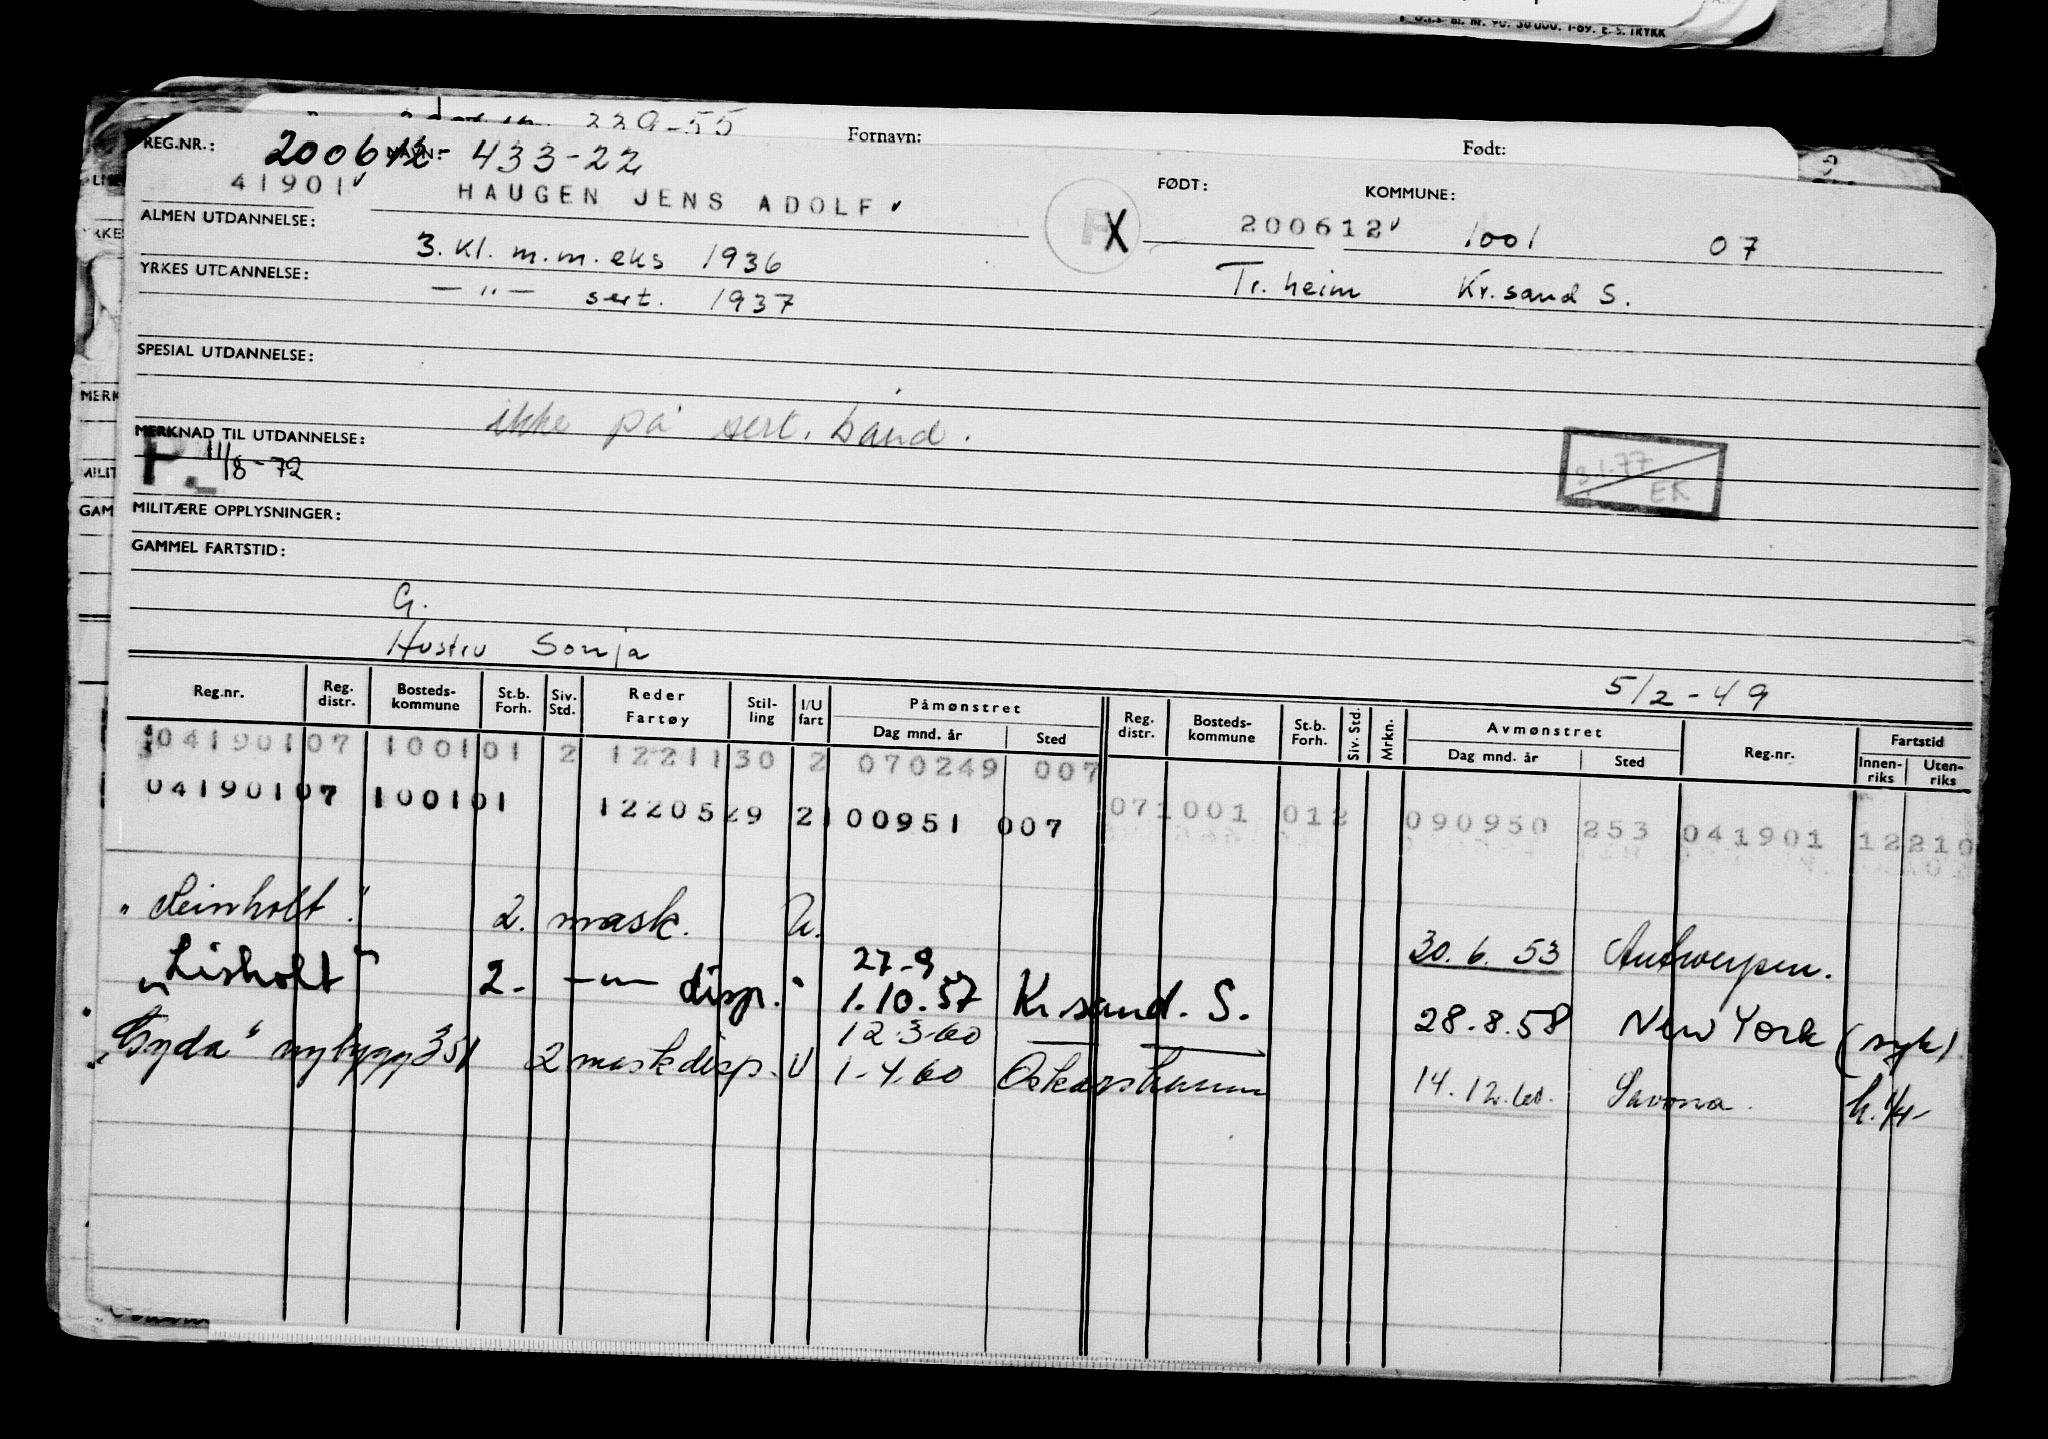 BL. Nr. 90. 30 000. 1-69. E. S. TRYKK
229-55
Fornavn: Født:
REG.NR.: 200612- NAVN: 433-22
41901 HAUGEN JENS ADOLF FØDT: KOMMUNE:
200612 1001 07
ALMEN UTDANNELSE: 3. kl. m.m.eks 1936 Tr.heim Kr.sand S.
YRKES UTDANNELSE: — " — sert. 1937
SPESIAL UTDANNELSE:
ikke på sert. bånd.
MERKNAD TIL UTDANNELSE:
P. 11/8-72
3.1.77 EK
MILITÆRE OPPLYSNINGER:
GAMMEL FARTSTID:
G.
Hustru Sonja
5/2-49
Reg.nr. Reg. distr. Bosteds-kommune St.b. Forh. Siv. Std. Reder Fartøy Stil-ling I/U fart Påmønstret Dag mnd. år Sted Reg. distr. Bosteds-kommune St.b. Forh. Siv. Std. Mrkn. Avmønstret Dag mnd. år Sted Reg.nr. Fartstid Innen-riks Uten-riks
041901 07 1001 01 2 12211 30 2 070249 007
07 1001 01 2 090950 253 041901 12210
041901 07 1001 01 12205 29 2 100951 007
"Leinholt." 2. mask. U. 30.6.53 Antwerpen.
"Lisholt" 2. — " — disp. " 27-9 1.10.57 Kr sand. S. 28.8.58 New York (syk)
"Gyda" nybygg 351 2 mask disp. U 12.3.60 1-4.60 Oskarshamn 14.12.60. Savona.